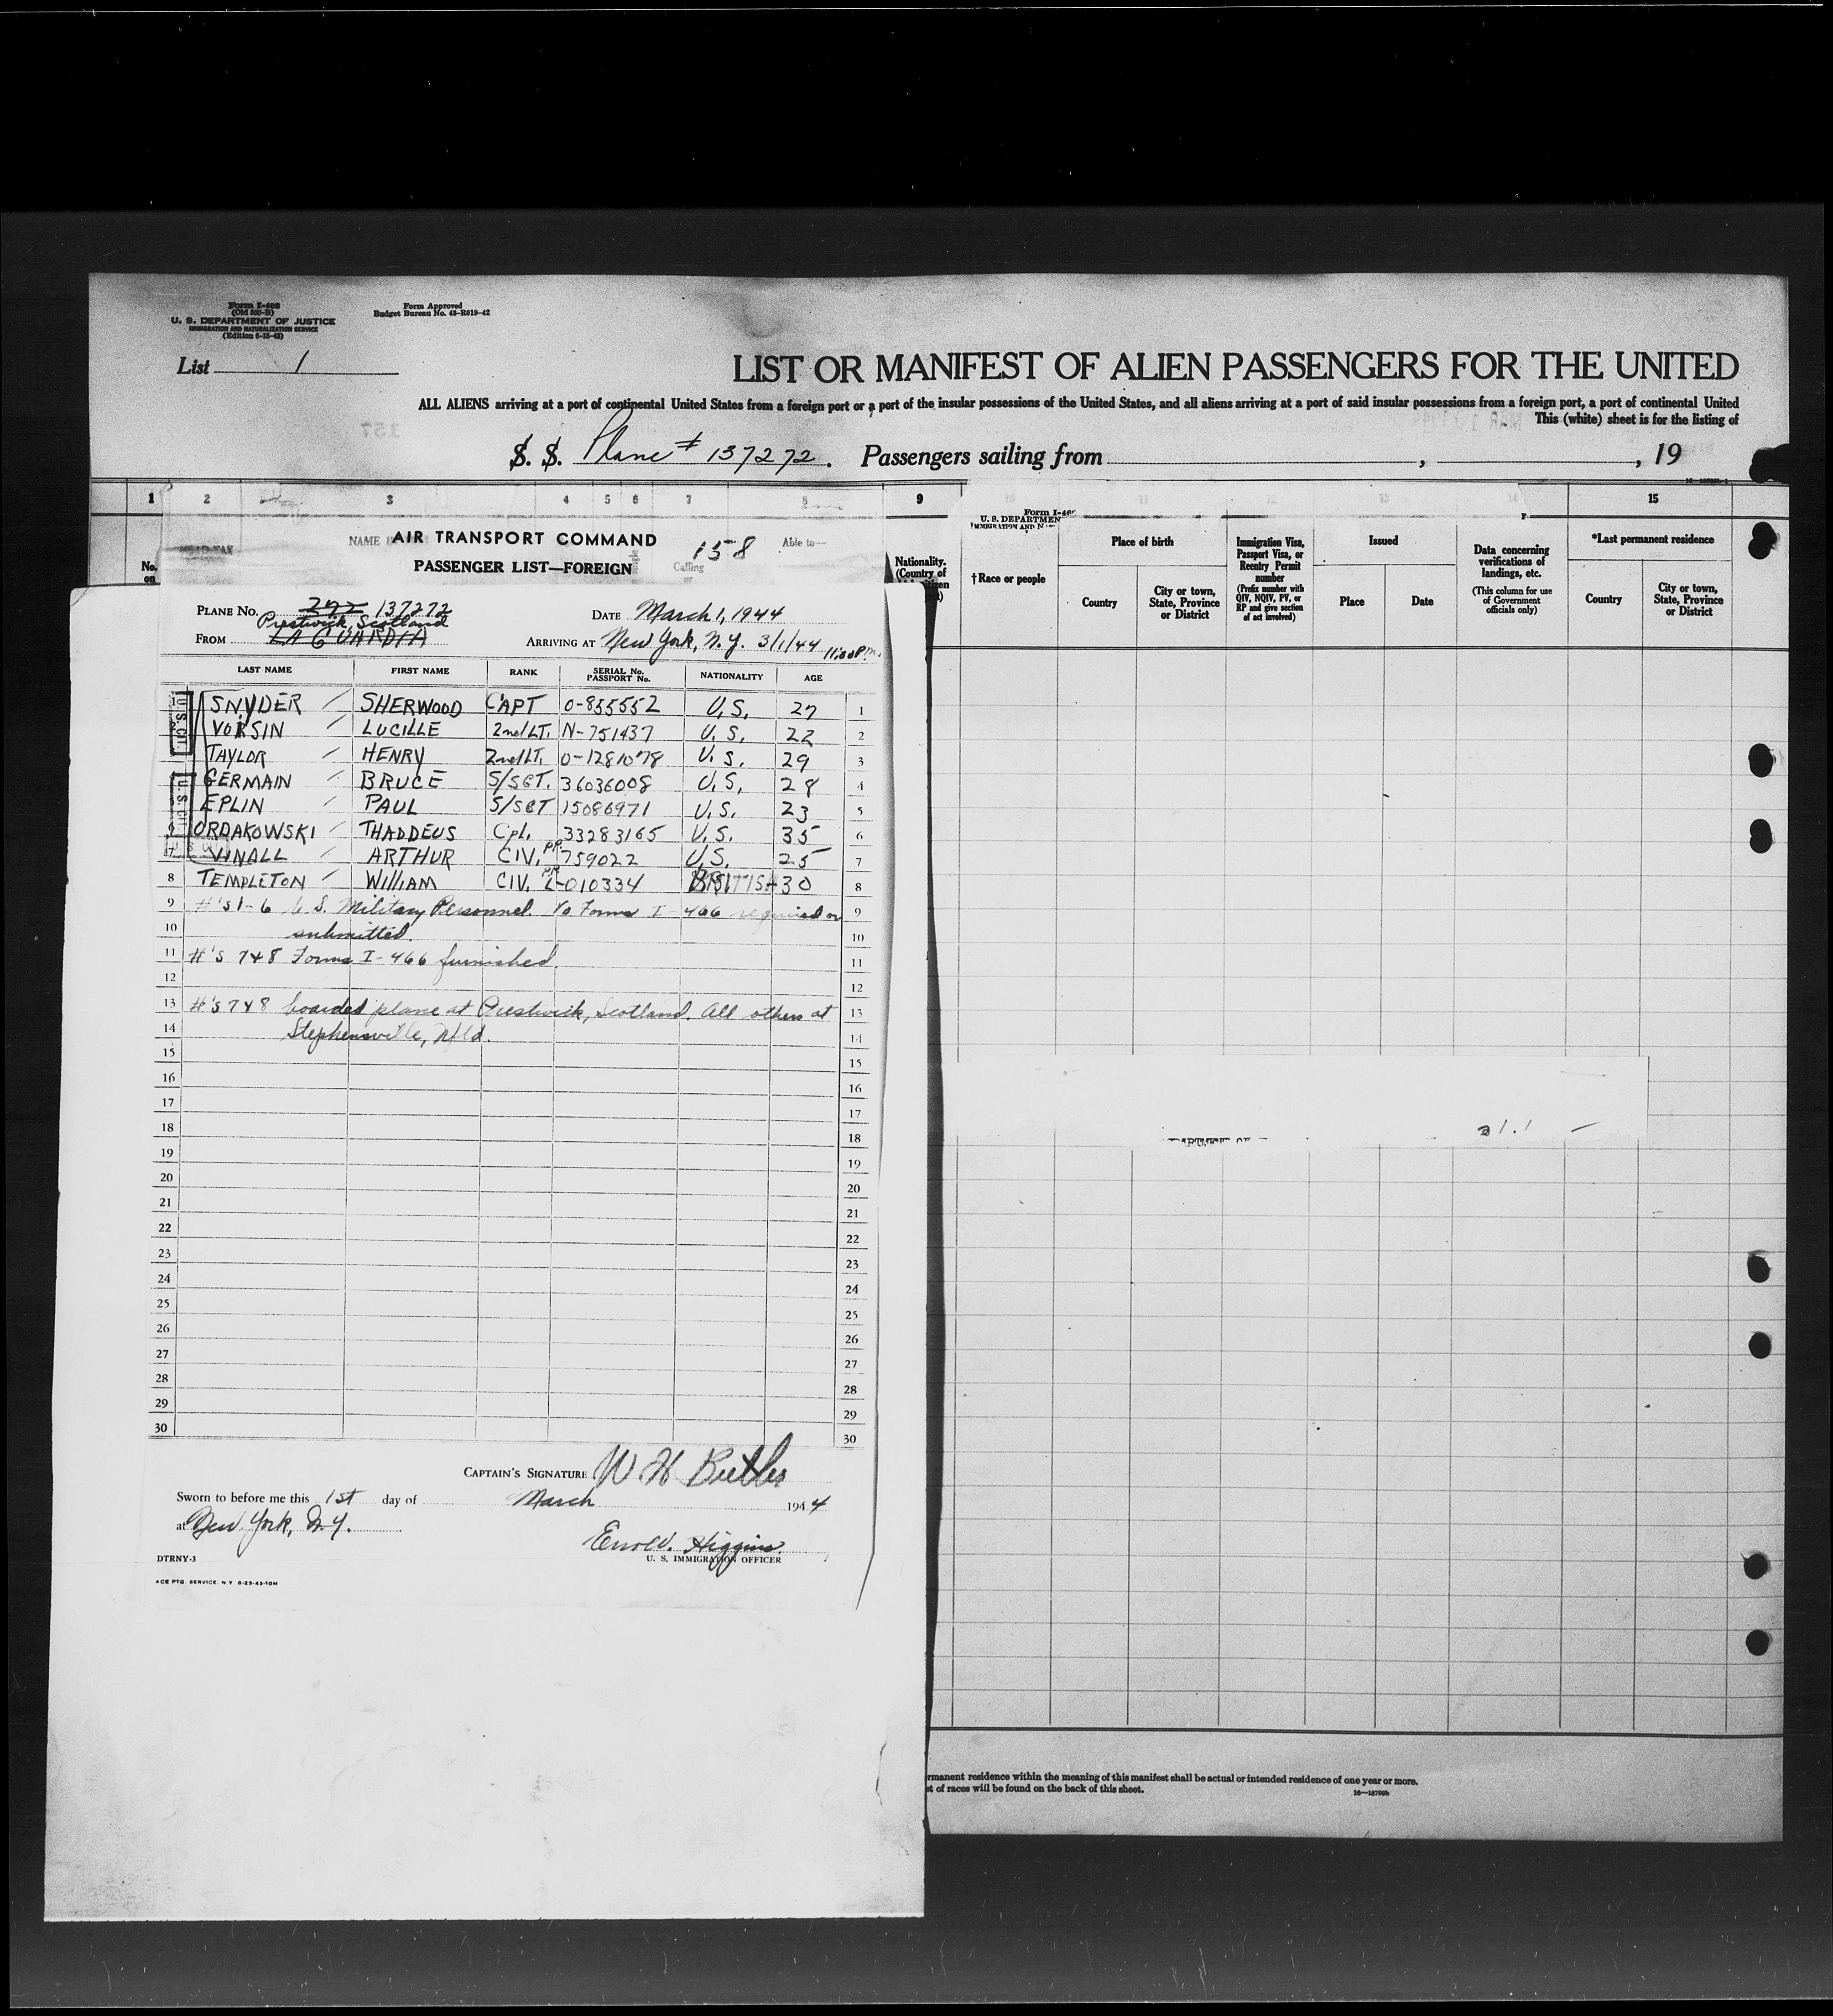 Form I-466
(Old 500-B)
U. S. DEPARTMENT OF JUSTICE
IMMIGRATION AND NATURALIZATION SERVICE
(Edition 6-15-43)
Form Approved
Budget Bureau No. 43-R019-42
List 1
LIST OR MANIFEST OF ALIEN PASSENGERS FOR THE UNITED
ALL ALIENS arriving at a port of continental United States from a foreign port or a port of the insular possessions of the United States, and all aliens arriving at a port of said insular possessions from a foreign port, a port of continental United
This (white) sheet is for the listing of
S. S. Plane # 137272. Passengers sailing from , , 19
1 2 3 4 5 6 7 8 9 10 11 12 13 14 15
No. on
HEAD-TAX
NAME
Calling or
Able to—
Nationality. (Country of
Form I-46
U. S. DEPARTMEN
IMMIGRATION AND N
†Race or people
Place of birth
Country
City or town, State, Province or District
Immigration Visa, Passport Visa, or Reentry Permit number
(Prefix number with QIV, NQIV, PV, or RP and give section of act involved)
Issued
Place
Date
Data concerning verifications of landings, etc.
(This column for use of Government officials only)
*Last permanent residence
Country
City or town, State, Province or District
AIR TRANSPORT COMMAND
158
PASSENGER LIST—FOREIGN
PLANE NO. 292 137272 DATE March 1, 1944
Prestwick, Scotland
FROM LA GUARDIA ARRIVING AT New York, N.Y. 3/1/44 11:00 P.M.
LAST NAME FIRST NAME RANK SERIAL NO. PASSPORT NO. NATIONALITY AGE
SNYDER SHERWOOD CAPT 0-835552 U.S. 27 1
VORSIN LUCILLE 2nd LT. N-751437 U.S. 22 2
TAYLOR HENRY 2nd LT. 0-1281078 U.S. 29 3
GERMAIN BRUCE S/SGT. 36036008 U.S. 28 4
EPLIN PAUL S/SGT 15086971 U.S. 23 5
ORDAKOWSKI THADDEUS Cpl. 33283165 U.S. 35 6
VINALL ARTHUR CIV. PP. 759022 U.S. 25 7
8 TEMPLETON WILLIAM CIV. PP. L-010334 BRITISH 30 8
U.S. CIT.
U.S. CIT.
9 #'s 1-6 U.S. Military Personnel. No Forms I-466 required or 9
10 submitted. 10
11 #'s 7 & 8 Forms I-466 furnished. 11
12 12
13 #'s 7 & 8 boarded plane at Prestwick, Scotland. All others at 13
14 Stephensville, Nfld. 14
15 15
16 16
17 17
18 18
19 19
20 20
21 21
22 22
23 23
24 24
25 25
26 26
27 27
28 28
29 29
30 30
CAPTAIN'S SIGNATURE W H Butler
Sworn to before me this 1st day of March 1944
at New York, N.Y.
Higgins
DTRNY-3
U. S. IMMIGRATION OFFICER
ACE PTG. SERVICE, N.Y. 8-23-43-10M
rmanent residence within the meaning of this manifest shall be actual or intended residence of one year or more.
st of races will be found on the back of this sheet.